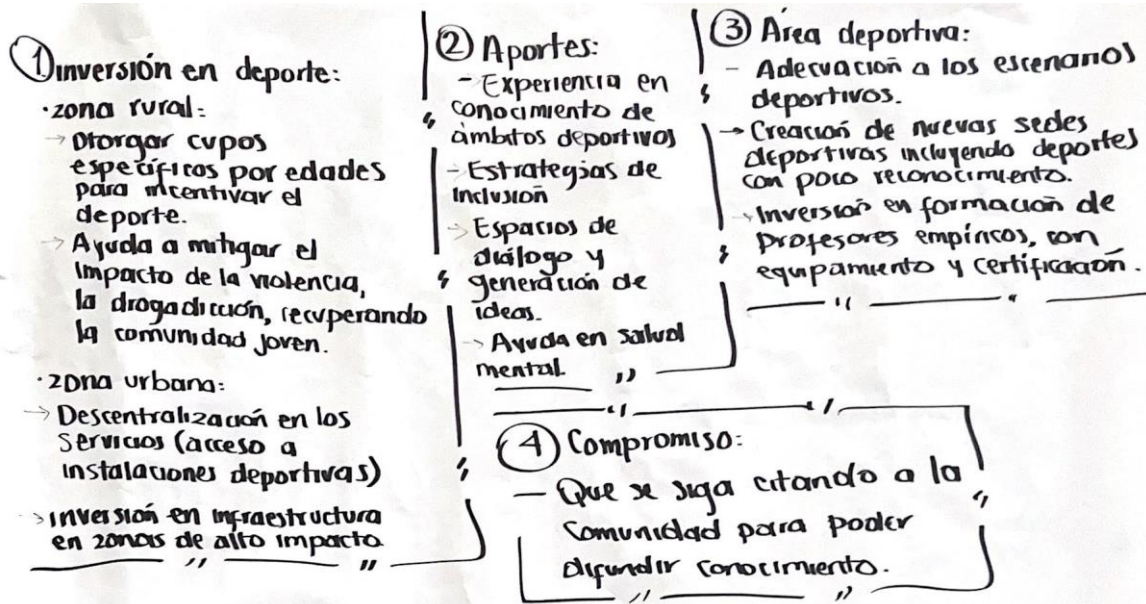 ① inversión en deporte:
·zona rural:
→ Otorgar cupos
específicos por edades
para incentivar el
deporte.
→ Ayuda a mitigar el
impacto de la violencia,
la drogadicción, recuperando
la comunidad joven.
·zona urbana:
→ Descentralización en los
servicios (acceso a
instalaciones deportivas)
→ inversión en infraestructura
en zonas de alto impacto
② Aportes:
- Experiencia en
conocimiento de
ámbitos deportivos
- Estrategias de
inclusión
→ Espacios de
diálogo y
generación de
ideas.
→ Ayuda en salud
mental.
③ Área deportiva:
- Adecuación a los escenarios
deportivos.
→ Creación de nuevas sedes
deportivas incluyendo deportes
con poco reconocimiento.
→ Inversión en formación de
profesores empíricos, con
equipamiento y certificación.
④ Compromiso:
— Que se siga citando a la
comunidad para poder
difundir conocimiento.